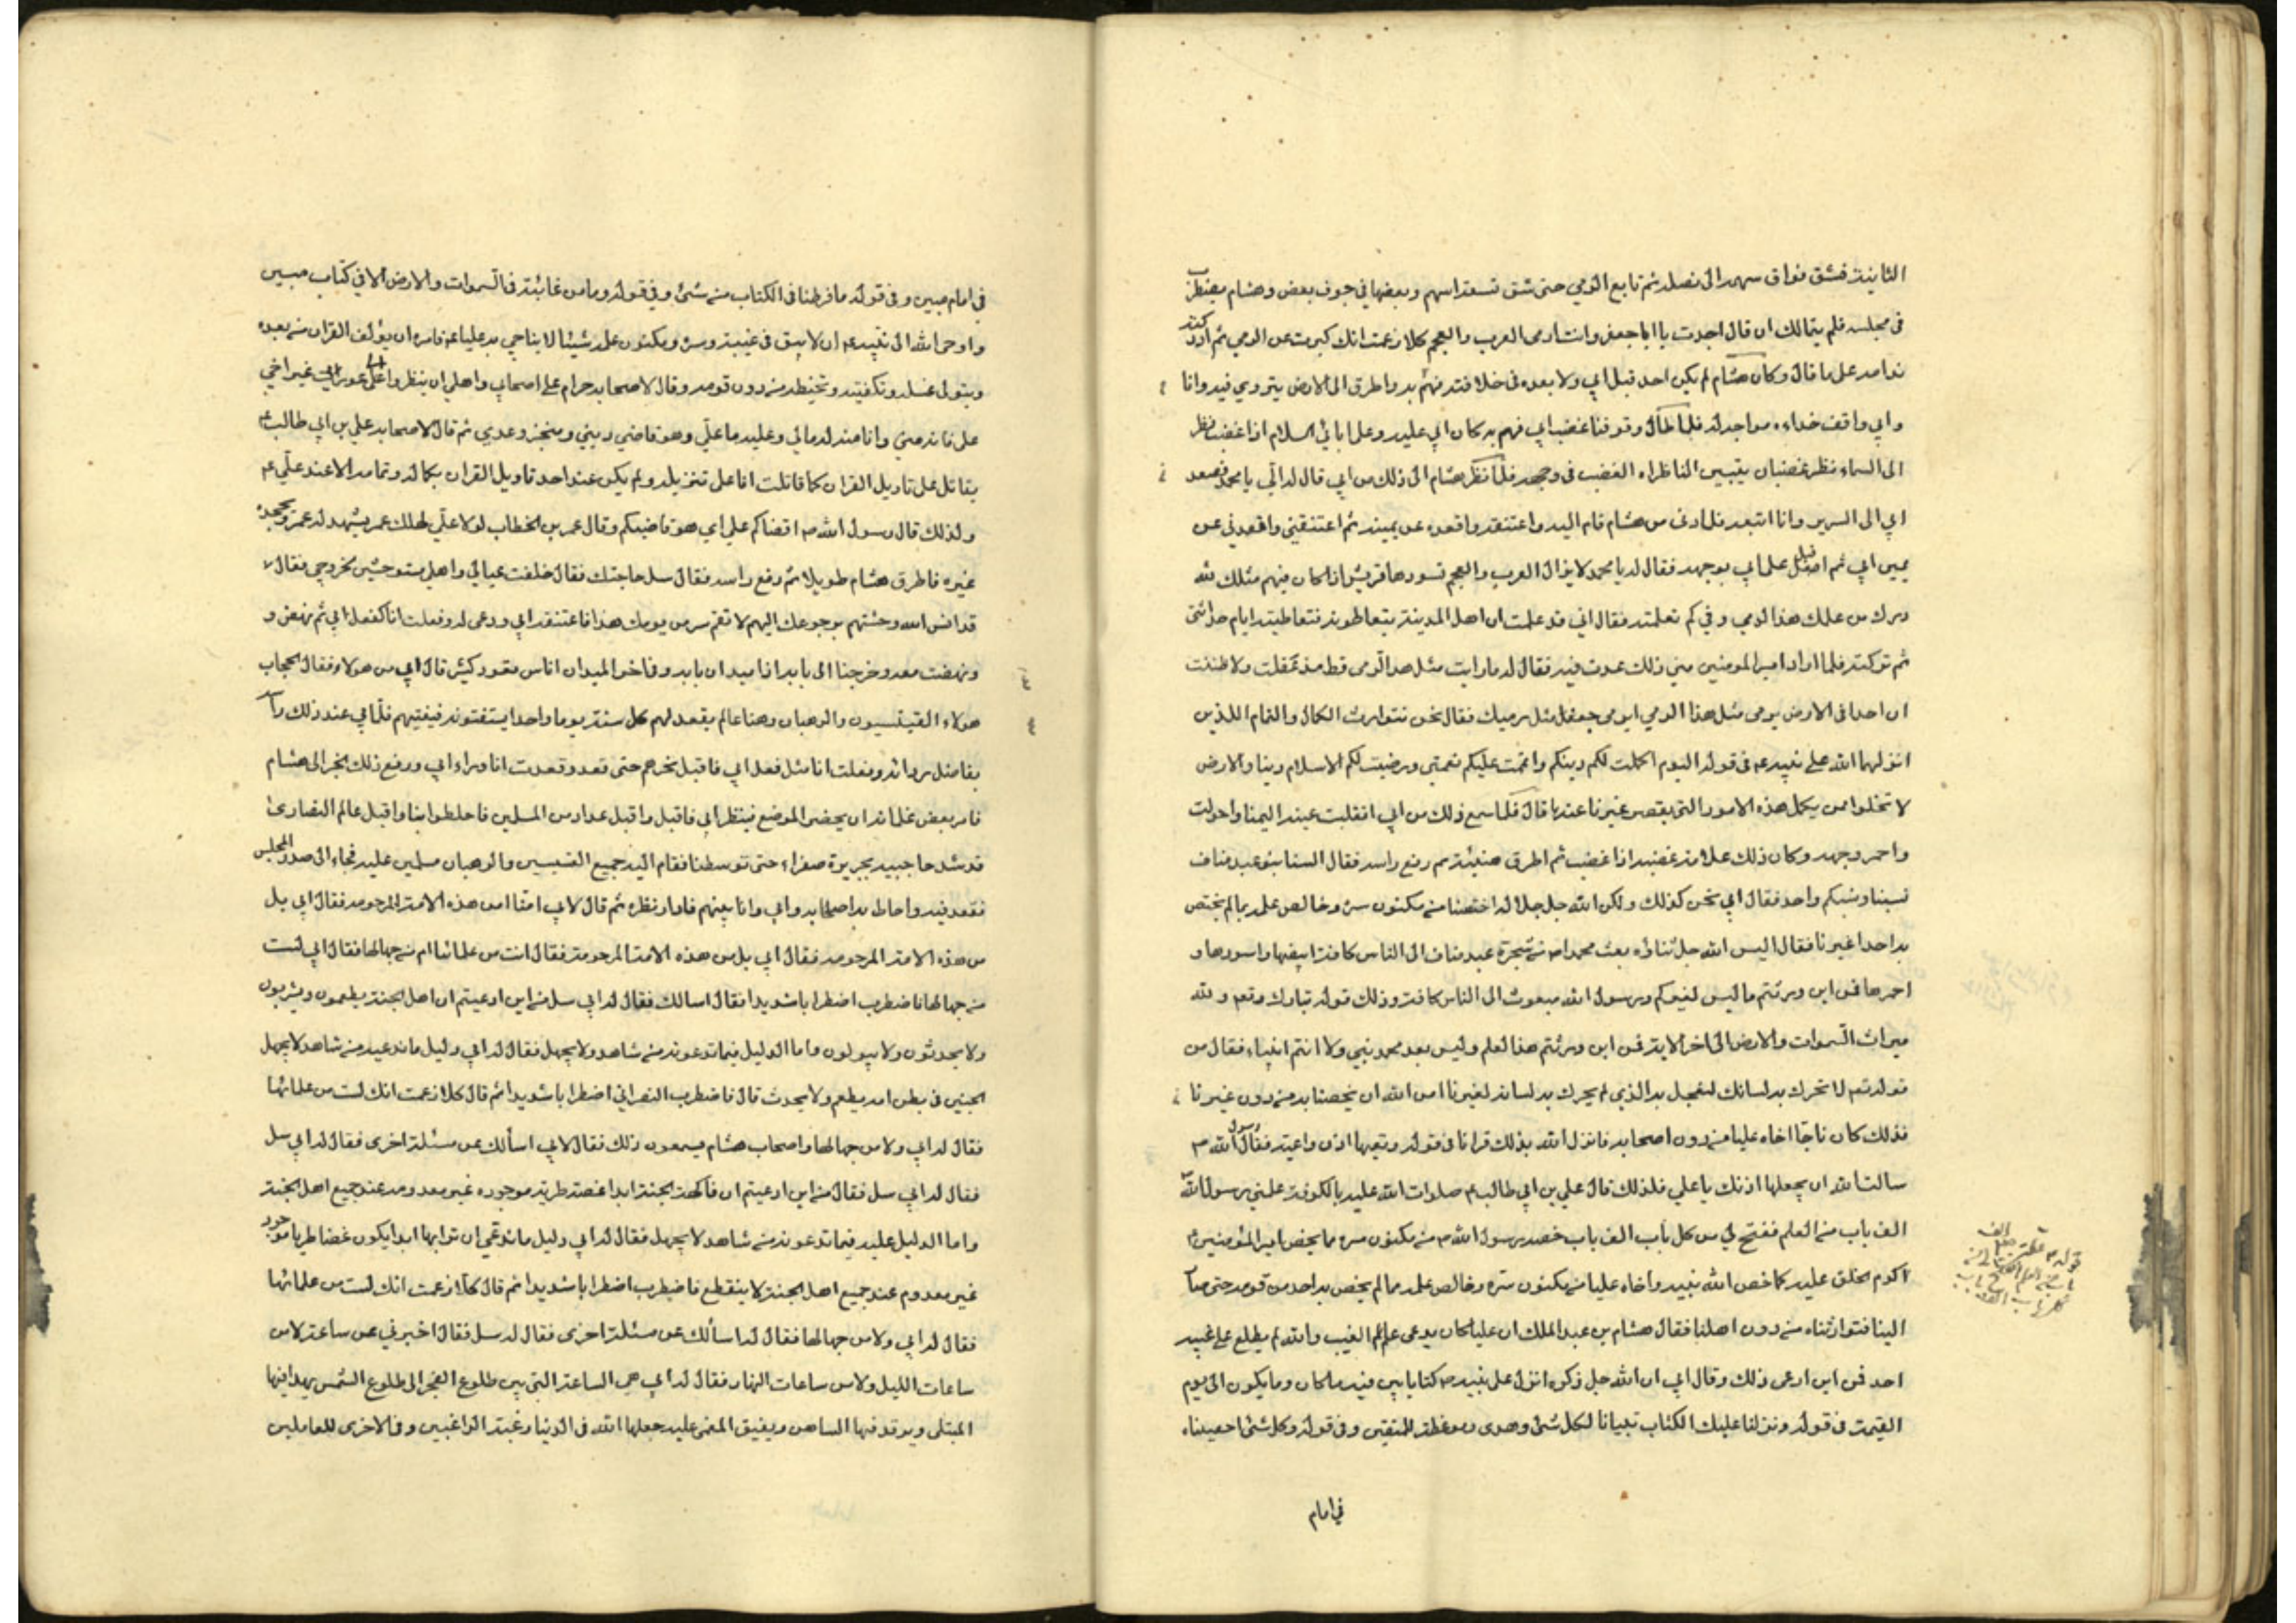 الثانية فشق فواق سهمه الى نصله ثم تابع الرمي حتى شق تسعة اسهم وبعضها في جوف بعض وهشام يضطرب
في مجلسه فلم يتمالك ان قال اجدت يا ابا جعفر وانت ارمى العرب والعجم كلا زعمت انك كبرت عن الرمي ثم ادركته
ندامه على ما قال وكان هشام لم يكن احد قبل ابي ولا بعده في خلافته فهم به واطرق الى الارض يتروي فيه وانا
وابي واقف حذاءه مواجها له فلما طال وقوفنا غضب ابي فهم به وكان ابي عليه وعلى ابائه السلام اذا غضب نظر
الى السماء نظر غضبان يتبين الناظر اه الغضب في وجهه فلما نظر هشام الى ذلك من ابي قال له الي يا محمد فصعد
ابي الى السرير وانا اتبعه فلما دنى من هشام قام اليه واعتنقه واقعده عن يمينه ثم اعتنقني واقعدني عن
يمين ابي ثم اقبل على ابي بوجهه فقال له يا محمد لا يزال العرب والعجم تسودها قريش اذا كان فيهم مثلك لله
درك من علمك هذا الرمي وفي كم تعلمته فقال ابي قد علمت ان اهل المدينة يتعاطونه فتعاطيته ايام حداثتي
ثم تركته فلما اراد امير المومنين مني ذلك عدت فيه فقال له ما رايت مثل هذا الرمي قط مذ عقلت ولا ظننت
ان احدا في الارض يرمي مثل هذا الرمي ايرمي جعفر مثل رميك فقال نحن نتوارث الكمال والتمام اللذين
انزلهما الله على نبيه ع في قوله اليوم اكملت لكم دينكم واتممت عليكم نعمتي ورضيت لكم الاسلام دينا والارض
لا تخلوا ممن يكمل هذه الامور التي يقصر غيرنا عنها قال فلما سمع ذلك من ابي انقلبت عينه اليمنا واحولت
واحمر وجهه وكان ذلك علامة غضبه اذا غضب ثم اطرق هنيئة ثم رفع راسه فقال السنا بنو عبد مناف
نسبنا ونسبكم واحد فقال ابي نحن كذلك ولكن الله جل جلاله اختصنا من مكنون سره وخالص علمه بما لم يختص
به احدا غيرنا فقال اليس الله جل ثناؤه بعث محمدا ص من شجرة عبد مناف الى الناس كافة ابيضها واسودها و
احمرها فمن اين ورثتم ما ليس لغيركم ورسول الله مبعوث الى الناس كافة وذلك قوله تبارك وتعم ولله
ميراث السموات والارض الى اخر الاية فمن اين ورثتم هذا العلم وليس بعد محمد نبي ولا انتم انبياء فقال من
قوله تعم لا تحرك به لسانك لتعجل به الذي لم يحرك به لسانه لغيرنا امر الله ان يخصنا به من دون غيرنا
فذلك كان ناجا اخاه عليا من دون اصحابه فانزل الله بذلك قرانا في قوله وتعيها اذن واعية فقال رسول الله ص
سالت الله ان يجعلها اذنك يا علي فلذلك قال علي بن ابي طالب ع صلوات الله عليه بالكوفة علمني رسول الله
الف باب من العلم ففتح لي من كل باب الف باب خصه رسول الله ص من مكنون سره ما يخص امير المؤمنين ع
اكرم الخلق عليه كما خص الله نبيه واخاه عليا من مكنون سره وخالص علمه مما لم يخص به احد من قومه حتى صار
الينا فتوارثناه من دون اهلنا فقال هشام بن عبد الملك ان عليا كان يدعى علم الغيب والله لم يطلع على غيبه
احد فمن اين ادعى ذلك وقال ابي ان الله جل ذكره انزل على نبيه ص كتابا بين فيه ما كان وما يكون الى يوم
القيمة في قوله ونزلنا عليك الكتاب تبيانا لكل شئ وهدى وموعظة للمتقين وفي قوله وكل شئ احصيناه
في امام
في امام مبين وفي قوله ما فرطنا في الكتاب من شئ وفي قوله وما من غائبة في السموات والارض الا في كتاب مبين
واوحى الله الى نبيه ع ان لا يبق في غيبته وسره ومكنون علمه شيئا الا يناجي به عليا ع فامره ان يؤلف القران من بعده
ويتولى غسله وتكفينه وتحنيطه من دون قومه وقال لاصحابه حرام على اصحابي واهلي ان ينظروا على عورتي غير اخي
علي فانه مني وانا منه له مالي وعليه ما علي وهو قاضي ديني ومنجز وعدي ثم قال لاصحابه علي بن ابي طالب ع
يقاتل على تاويل القران كما قاتلت انا على تنزيله ولم يكن عند احد تاويل القران بكماله وتمامه الا عند علي ع
ولذلك قال رسول الله ص اقضاكم علي اي هو قاضيكم وقال عمر بن الخطاب لولا علي لهلك عمر يشهد له عمر ويجحده
غيره فاطرق هشام طويلا ثم رفع راسه فقال سل حاجتك فقال خلفت عيالي واهلي مستوحشين لخروجي فقال
قد انس الله وحشتهم برجوعك اليهم لا تقم سر من يومك هذا فاعتنقه ابي ودعى له وفعلت انا كفعل ابي ثم نهض و
ونهضت معه وخرجنا الى بابه اذا ميدان ببابه وفي اخر الميدان اناس قعود كثير قال ابي من هولاء فقال الحجاب
هولاء القسيسون والرهبان وهنا عالم يقعد لهم كل سنة يوما واحدا يستفتونه فيفتيهم فلف ابي عند ذلك راسه
بفاضل ردائه وفعلت انا مثل فعل ابي فاقبل نحوهم حتى قعد وقعدت انا وراء ابي ورفع ذلك الخبر الى هشام
فامر بعض غلمانه ان يحضر الموضع فينظر ابي فاقبل واقبل عداد من المسلمين فاحاطوا بنا واقبل عالم النصارى
قد شد حاجبيه بحريرة صفراء حتى توسطنا فقام اليه جميع القسيسين والرهبان مسلمين عليه فجاء الى صدر المجلس
فقعد فيه واحاط به اصحابه وابي وانا بينهم فادار نظره ثم قال لابي امنا ام من هذه الامة المرحومه فقال ابي بل
من هذه الامة المرحومه فقال ابي بل من هذه الامة المرحومة فقال انت من علمائها ام من جهالها فقال ابي لست
من جهالها فاضطرب اضطرابا شديدا فقال اسالك فقال له ابي سل من اين ادعيتم ان اهل الجنة يطعمون ويشربون
ولا يحدثون ولا يبولون وما الدليل فيما تدعونه من شاهد ولا يجهل فقال له ابي دليل ما ندعيه من شاهد لا يجهل
الجنين في بطن امه يطعم ولا يحدث قال فاضطرب النصراني اضطرابا شديدا ثم قال كلا زعمت انك لست من علمائها
فقال له ابي ولا من جهالها واصحاب هشام يسمعون ذلك فقال لابي اسألك عن مسئلة اخرى فقال له ابي سل
فقال له ابي سل فقال من اين ادعيتم ان فاكهة الجنة ابدا غضة طرية موجوده غير معدومه عند جميع اهل الجنة
واما الدليل عليه فيما تدعونه من شاهد لا يجهل فقال له ابي دليل ما ندعي ان ترابها ابدا يكون غضا طريا موجود
غير معدوم عند جميع اهل الجنة لا ينقطع فاضطرب اضطرابا شديدا ثم قال كلا زعمت انك لست من علمائها
فقال له ابي ولا من جهالها فقال له اسألك عن مسئلة اخرى فقال له سل فقال اخبرني عن ساعة لا من
ساعات الليل ولا من ساعات النهار فقال له ابي هي الساعة التي بين طلوع الفجر الى طلوع الشمس يهدا فيها
المبتلى ويرقد فيها الساهر ويفيق المغمى عليه جعلها الله في الدنيا رغبة الراغبين وفي الاخرى للعاملين